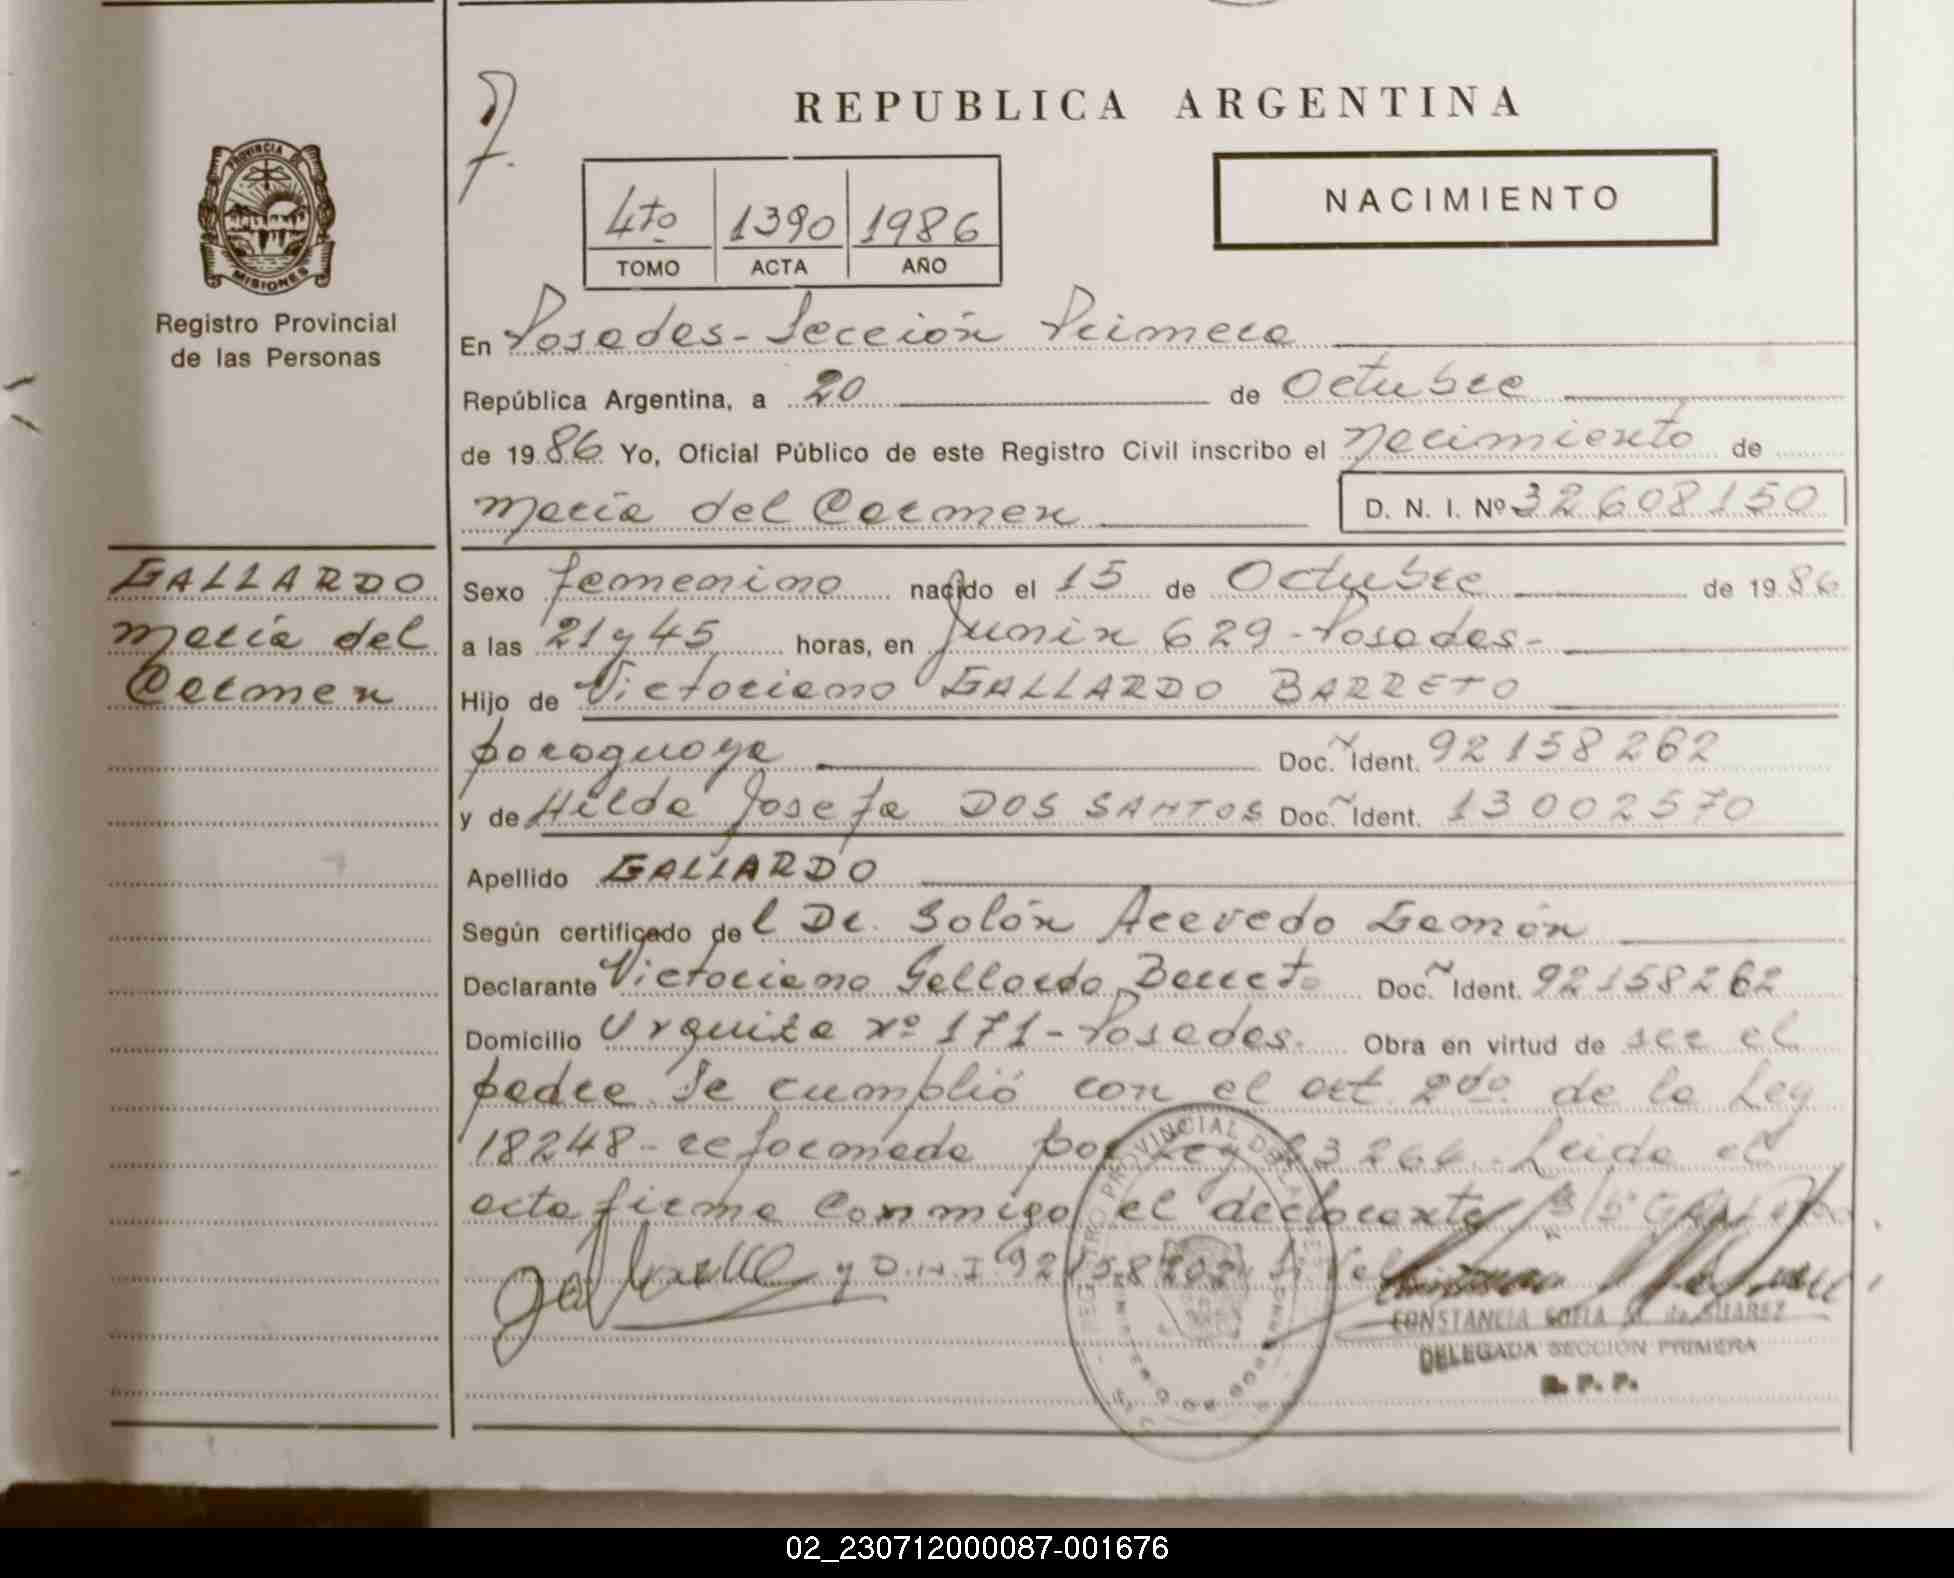 REPUBLICA ARGENTINA
PROVINCIA DE
MISIONES
Registro Provincial
de las Personas
4to 1390 1986
TOMO ACTA AÑO
NACIMIENTO
En Posadas - Sección Primera
República Argentina, a 20 de Octubre
de 1986 Yo, Oficial Público de este Registro Civil inscribo el nacimiento de
María del Carmen D. N. I. Nº 32608150
GALLARDO
María del
Carmen
Sexo femenino nacido el 15 de Octubre de 1986
a las 21 y 45 horas, en Junin 629 - Posadas -
Hijo de Victoriano GALLARDO BARRETO
paraguaya Doc. Ident. 92158262
y de Hilda Josefa DOS SANTOS Doc. Ident. 13002570
Apellido GALLARDO
Según certificado del Dr. Solón Acevedo Gamón
Declarante Victoriano Gallardo Barreto Doc. Ident. 92158262
Domicilio Urquiza nº 171 - Posadas. Obra en virtud de ser el
padre. Se cumplió con el art. 2do. de la Ley
18248 - reformada por Ley 23264. Leida el
acta firma conmigo el declarante
y D.N.I 92158262
REGISTRO PROVINCIAL DE LAS PERSONAS
CONSTANCIA SOFIA de SUAREZ
DELEGADA SECCION PRIMERA
R. P. P.
02_230712000087-001676